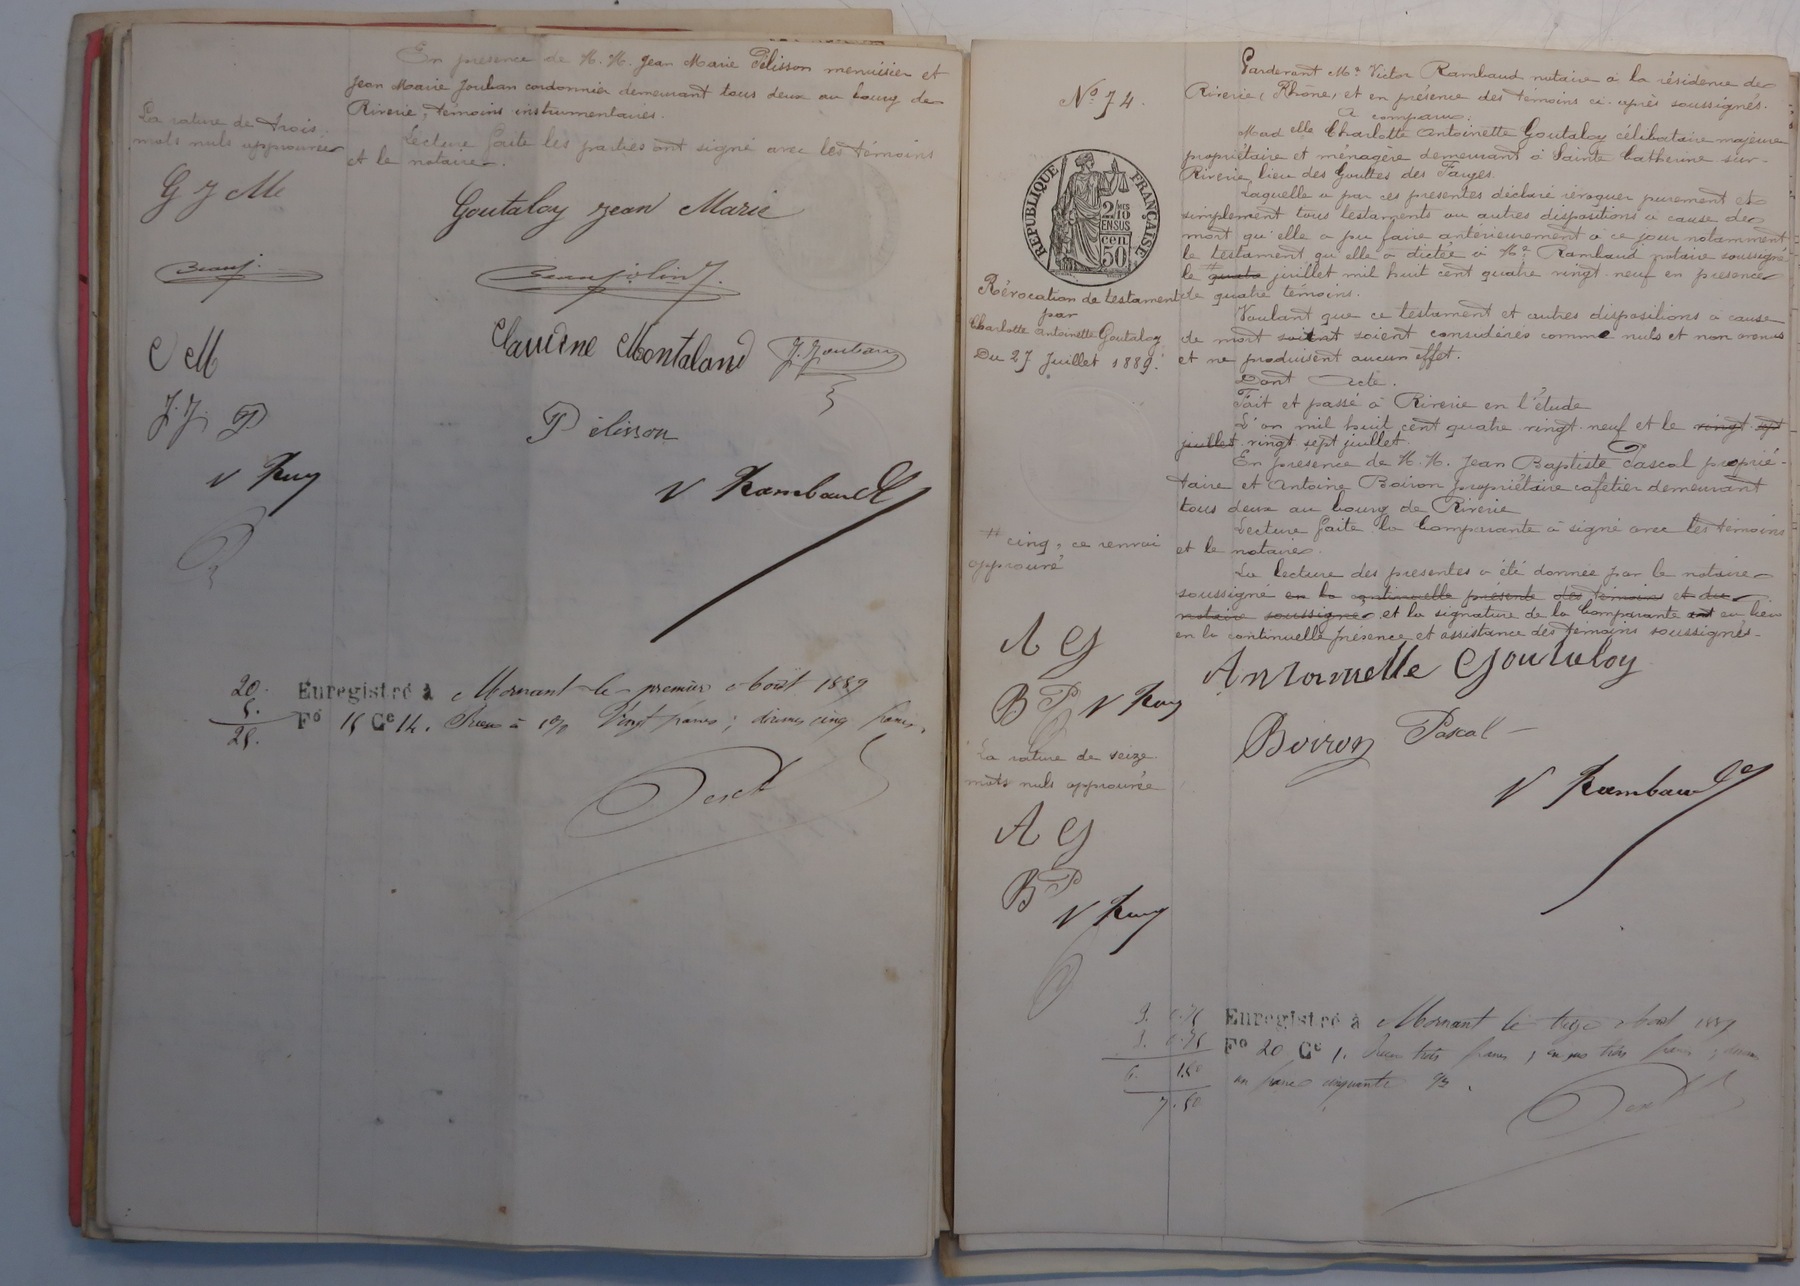 En présence de M. M. Jean Marie Pélisson menuisier et
Jean Marie Jouban cordonnier demeurant tous deux au bourg de
Riverie, témoins instrumentaires.
Lecture faite les parties ont signé avec les témoins
et le notaire.
La rature de trois
mots nuls approuvée
G J M
Goutaloy Jean Marie
Beauj.
Beaujolin J.
C M
Claudine Montaland
J. Jouban
J. J. P
Pélisson
V Ray
V Rambaud
20.
5.
25.
Enregistré à Mornant le premier Août 1889
Fo 15 Ce 14. Reçu à 1% Vingt francs ; décimes cinq francs.
No 74.
RÉPUBLIQUE FRANÇAISE
2/10 MES
EN SUS
50 cen
Révocation de testament
par
Charlotte Antoinette Goutaloy
Du 27 Juillet 1889.
Pardevant Me Victor Rambaud notaire à la résidence de
Riverie (Rhône) et en présence des témoins ci-après soussignés.
A comparu.
Mad elle Charlotte Antoinette Goutaloy célibataire majeure
propriétaire et ménagère demeurant à Sainte Catherine sur-
Riverie lieu des Gouttes des Fanges.
Laquelle a par ces présentes déclaré révoquer purement et
simplement tous testaments ou autres dispositions à cause de
mort qu'elle a pu faire antérieurement à ce jour notamment
le testament qu'elle a dictée à Me Rambaud notaire soussigné
le # quatre juillet mil huit cent quatre vingt neuf en présence
de quatre témoins.
Voulant que ce testament et autres dispositions à cause
de mort soient soient considérés comme nuls et non avenus
et ne produisent aucun effet.
Dont Acte.
Fait et passé à Riverie en l'étude
L'an mil huit cent quatre vingt neuf et le vingt sept
juillet vingt sept juillet.
En présence de M. M. Jean Baptiste Pascal proprié-
taire et Antoine Boiron propriétaire cafetier demeurant
tous deux au bourg de Riverie
Lecture faite la Comparante a signé avec les témoins
et le notaire.
La lecture des présentes a été donnée par le notaire
soussigné en la continuelle présente des témoins et du
notaire soussigné, et la signature de la Comparante ont eu lieu
en la continuelle présence et assistance des témoins soussignés.
# cinq, ce renvoi
approuvé
A G
B P V Ray
Antoinette Goutaloy
Boiron Pascal
V Rambaud
La rature de seize
mots nuls approuvée
A G
B P
V Ray
3. 0.75
3. 0.75
6. 1.50
7.50
Enregistré à Mornant le treize Août 1889
Fo 20 Ce 1. Reçu trois francs ; en sus trois francs ; décimes
un franc cinquante